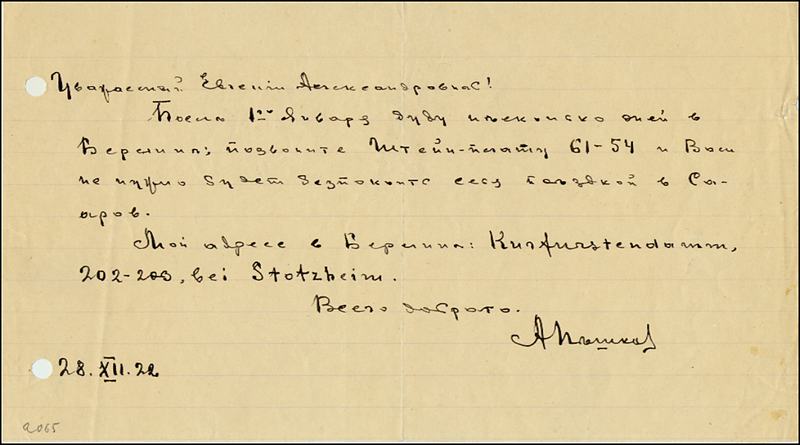 Уважаемый Евгений Александрович!
После 1го Января буду несколько дней в
Берлине; позвоните Штейн-платц 61-54 и Вам
не нужно будет безпокоить себя поездкой в Са-
аров.
Мой адрес в Берлине: Kurfurstendamm,
202-203, bei Stotzheim.
Всего доброго.
АПешков
28.XII.22
a065